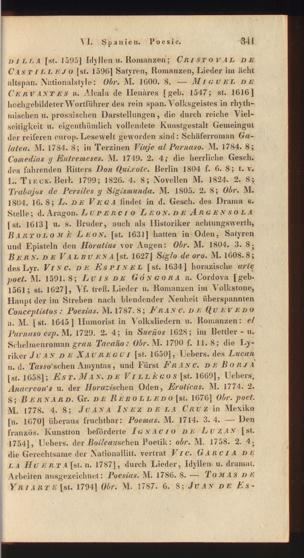 VI. Spanien. Poesie. 341
DILLA [st. 1595] Idyllen u. Romanzen; CRISTOVAL DE
CASTILLEJO [st. 1596] Satyren, Romanzen, Lieder im ächt
altspan. Nationalstyle: Obr. M. 1600. 8. — MIGUEL DE
CERVANTES u. Alcala de Henàres [geb. 1547; st. 1616]
hochgebildeter Wortführer des rein span. Volksgeistes in rhyth-
mischen u. prosaischen Darstellungen, die durch reiche Viel-
seitigkeit u. eigenthümlich vollendete Kunstgestalt Gemeingut
der reiferen europ. Lesewelt geworden sind: Schäferroman Ga-
latea. M. 1784. 8; in Terzinen Viaje al Parnaso. M. 1784. 8;
Comedias y Entremeses. M. 1749. 2. 4; die herrliche Gesch.
des fahrenden Ritters Don Quixote. Berlin 1804 f. 6. 8; t. v.
L. TIECK. Berl. 1799; 1826. 4. 8; Novellen M. 1824. 2. 8;
Trabajos de Persiles y Sigismunda. M. 1805. 2. 8; Obr. M.
1804. 16. 8; L. DE VEGA findet in d. Gesch. des Drama s.
Stelle; d. Aragon. LUPERCIO LEON. DE ARGENSOLA
[st. 1613] u. s. Bruder, auch als Historiker achtungswerth,
BARTOLOMÈ LEON. [st. 1631] hatten in Oden, Satyren
und Episteln den Horatius vor Augen: Obr. M. 1804. 3. 8;
BERN. DE VALBUENA [st. 1627] Siglo de oro. M. 1608. 8;
des Lyr. VINC. DE ESPINEL [st. 1634] horazische arte
poet. M. 1591. 8; LUIS DE GÓNGORA u. Cordova [geb.
1561; st. 1627], Vf. treff. Lieder u. Romanzen im Volkstone,
Haupt der im Streben nach blendender Neuheit überspannten
Conceptistos: Poesias. M. 1787. 8; FRANC. DE QUEVEDO
a. M. [st. 1645] Humorist in Volksliedern u. Romanzen: el
Parnaso esp. M. 1729. 2. 4; in Sueños 1628; im Bettler- u.
Schelmenroman gran Tacaño: Obr. M. 1790 f. 11. 8; die Ly-
riker JUAN DE XAUREGUI [st. 1650], Uebers. des Lucan
u. d. Tasso'schen Amyntas, und Fürst FRANC. DE BORJA
[st. 1658]; EST. MAN. DE VILLEGOS [st. 1669], Uebers,
Anacreon's u. der Horazischen Oden, Eroticas. M. 1774. 2.
8; BERNARD. Gr. DE REBOLLEDO [st. 1676] Obr. poet.
M. 1778. 4. 8; JUANA INEZ DE LA CRUZ in Mexiko
[n. 1670] überaus fruchtbar: Poemas. M. 1714. 3. 4. — Den
französ. Kunstton beförderte IGNACIO DE LUZAN [st.
1754], Uebers. der Boileauschen Poetik: obr. M. 1758. 2. 4;
die Gerechtsame der Nationallitt. vertrat VIC. GARCIA DE
LA HUERTA [st. n. 1787], durch Lieder, Idyllen u. dramat.
Arbeiten ausgezeichnet: Poesias. M. 1786. 8. — TOMAS DE
YRIARTE [st. 1794] Obr. M. 1787. 6. 8; JUAN DE ES-